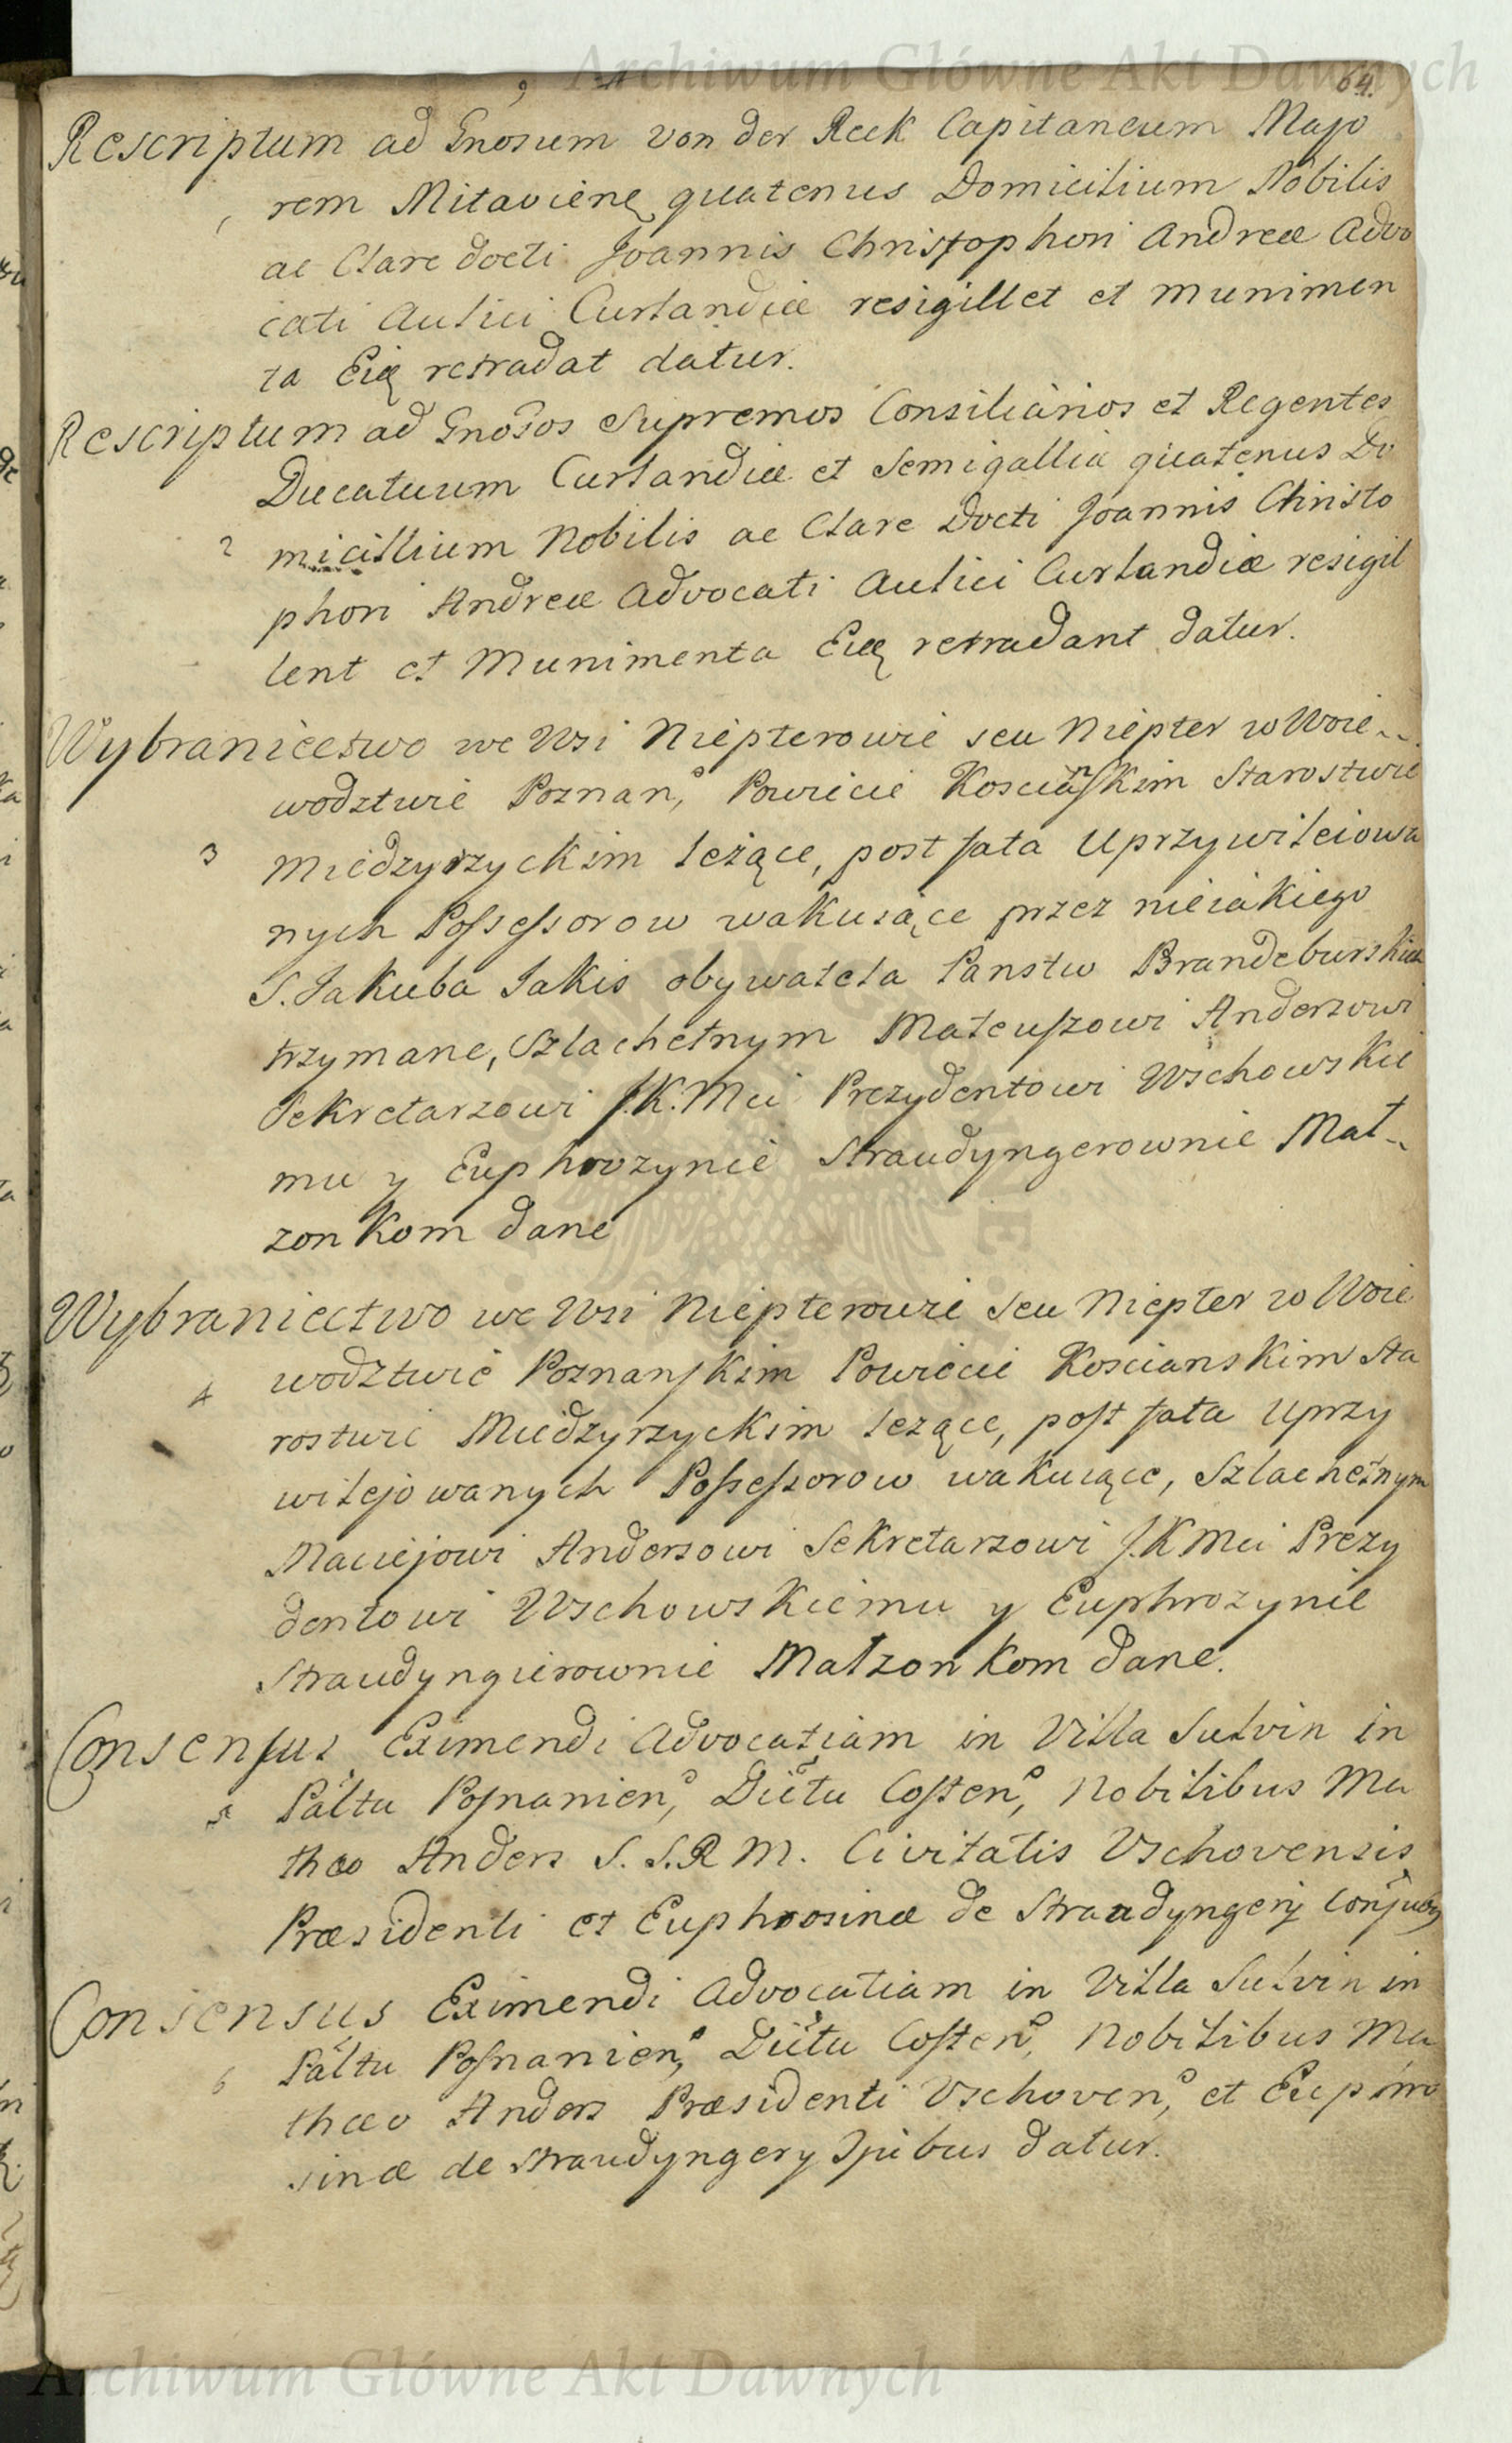 Archiwum Główne Akt Dawnych
64.
Rescriptum ad Gnosum von der Reck Capitaneum Majo
1 rem Mitavienę quatenus Domicilium Nobilis
ac Clare docti Joannis Christophori Andreæ Advo
cati Aulici Curlandiæ resigillet et munimen
ta Eię retradat datur.
Rescriptum ad Gnosos Supremos Consiliarios et Regentes
Ducatuum Curlandiæ et Semigalliæ quatenus Do
2 micillium Nobilis ac Clare Docti Joannis Christo
phori Andreæ Advocati Aulici Curlandiæ resigil
lent et Munimenta Eię retradant datur.
Wybraniectwo we Wsi Niepterowie seu Niepter w Woie
wodztwie Poznan, Powiecie Kosciańskim Starostwie
3 Miedzyrzyckim leżące, post fata Uprzywileiowa
nych Possessorow wakuiące przez nieiakiego
S. Jakuba Jakis obywatela Panstw Brandeburskich
trzymane, Szlachetnym Mateuszowi Andersowi
Sekretarzowi J.K.Mci Prezydentowi Wschowskie
mu y Euphrozynie Straudyngerownie Mał
zonkom dane
Wybraniectwo we Wsi Niepterowie seu Niepter w Woie
wodztwie Poznanskim Powiecie Koscianskim Sta
4 rostwie Miedzyrzyckim lezące, post fata Uprzy
wilejowanych Possessorow wakuiące, Szlachetnym
Maciejowi Andersowi Sekretarzowi J.K Mci Prezy
dentowi Wschowskiemu y Euphrozynie
Straudyngierownie Małzonkom dane.
Consensus Eximendi Advocatiam in Villa Sulvin in
5 Paltu Posnanien, Dictu Costen, Nobilibus Ma
thæo Anders S. S.R M. Civitatis Vschovensis
Præsidenti et Euphrosinæ de Straudyngery Conjubg
Consensus Eximendi Advocatiam in Villa Sulvin in
6 Paltu Posnanien, Dictu Costen, Nobilibus Ma
thæo Anders Præsidenti Vschoven, et Euphro
sinæ de Straudyngery Jpibus datur.
Archiwum Główne Akt Dawnych